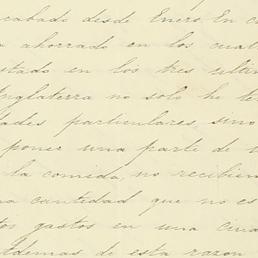 cabado desde Enero. En c
a ahorrado en los cual
stado en los tres ultim
Inglaterra no solo he te
dades particulares, sino
poner una parte de
la comida, no recibien
na cantidad que no es
tos gastos en una ciud
Ademas de esta razon